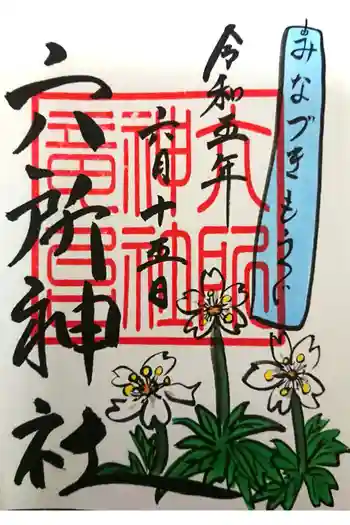 みなづきもうで
令和五年
六月十五日
六所神社
六所
神社